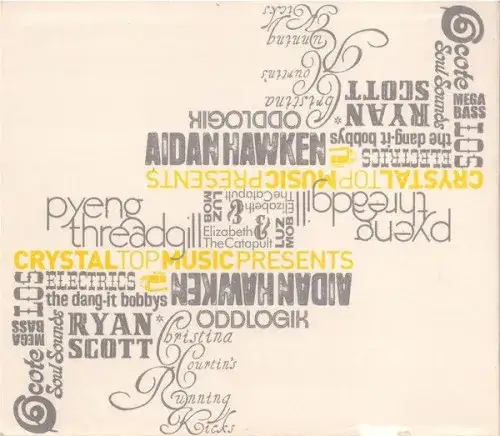 Kicks
Running
Courtin's
Christina
RYAN
SCOTT
Soul Sounds
MEGA
BASS
ODDLOGIK
the dang-it bobbys
AIDAN HAWKEN
ELECTRICS
CRYSTALTOPMUSICPRESENTS
pyeng
threadgill
MOB
LUZ
Elizabeth
&
The Catapult
Elizabeth
&
The Catapult
LUZ
MOB
pyeng
threadgill
CRYSTALTOPMUSICPRESENTS
ELECTRICS
AIDAN HAWKEN
the dang-it bobbys
ODDLOGIK
MEGA
BASS
Soul Sounds
RYAN
SCOTT
Christina
Courtin's
Running
Kicks